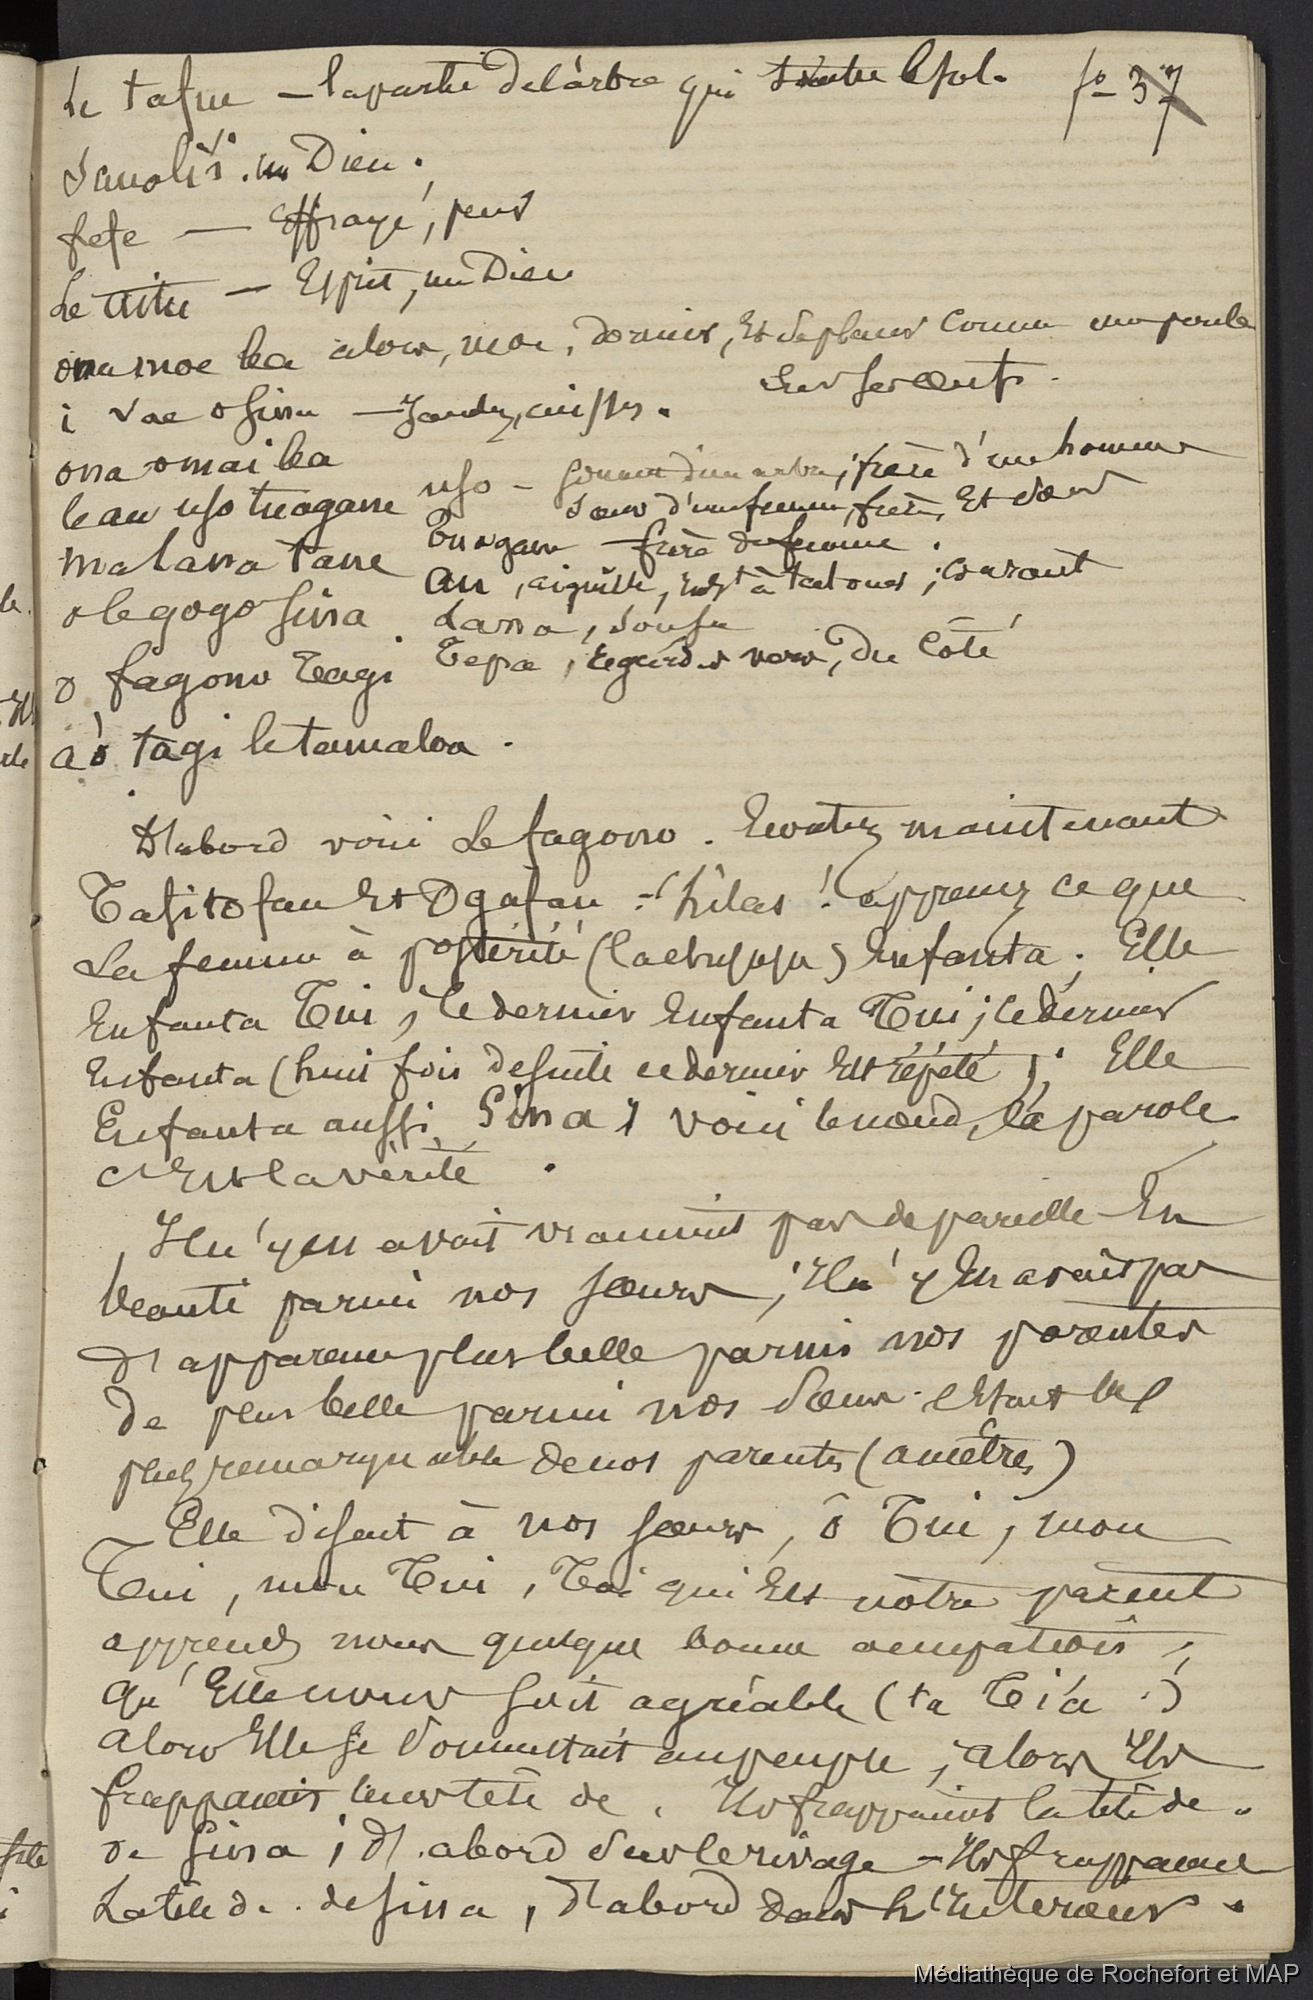 Le tafue — la partie de l'arbre qui touche le sol. fo 37
un Dieu.
fefe — Effrayé, peur
Le aitu — Esprit, un Dieu
ona moe lea alors, moe, dormir, Et se placer comme une poule
sur ses œufs.
i vae o Sina — Jambes, cuisses.
ona omai lea
le au uso tuagane
uso — d'un arbre, frère d'un homme
sœur d'une femme, frère, Et sœur
malana tane
Tuagane — frère de femme.
au, aiguille, à tatouer, courant
o le gogo Sina
o fagono tagi
Tepa, regarder vers, du côté
a o tagi le tamaloa.
D'abord voici Le fagono. Ecoutez maintenant
Tafitofau Et Ogafau — hélas! apprenez ce que
La femme à postérité enfanta; Elle
Enfanta Tui, le dernier Enfanta Tui; le dernier
Enfanta (huit fois de suite ce dernier Est répété); Elle
Enfanta aussi Sina; voici le nœud, la parole
c'Est la vérité.
Il n'y en avait vraiment pas de pareille En
beauté parmi nos sœurs; Il n'y En avait pas
d'apparence plus belle parmi nos parentes
de plus belle parmi nos sœurs
plus remarquable de nos parents (ancêtres)
Elle disent à nos sœurs, ô Tui, mon
Tui, mon Tui, Toi qui Est notre parent
apprends nous quelque bonne occupation,
qu'Elle nous soit agréable (ta Ti'a.)
alors Elle se soumettait au peuple, alors Ils
frappaient leur tête de. Ils frappaient la tête de.
de Sina; d'abord sur le rivage — Ils frappaient
La tête de. de Sina, d'abord dans l'Interieur.
Médiathèque de Rochefort et MAP